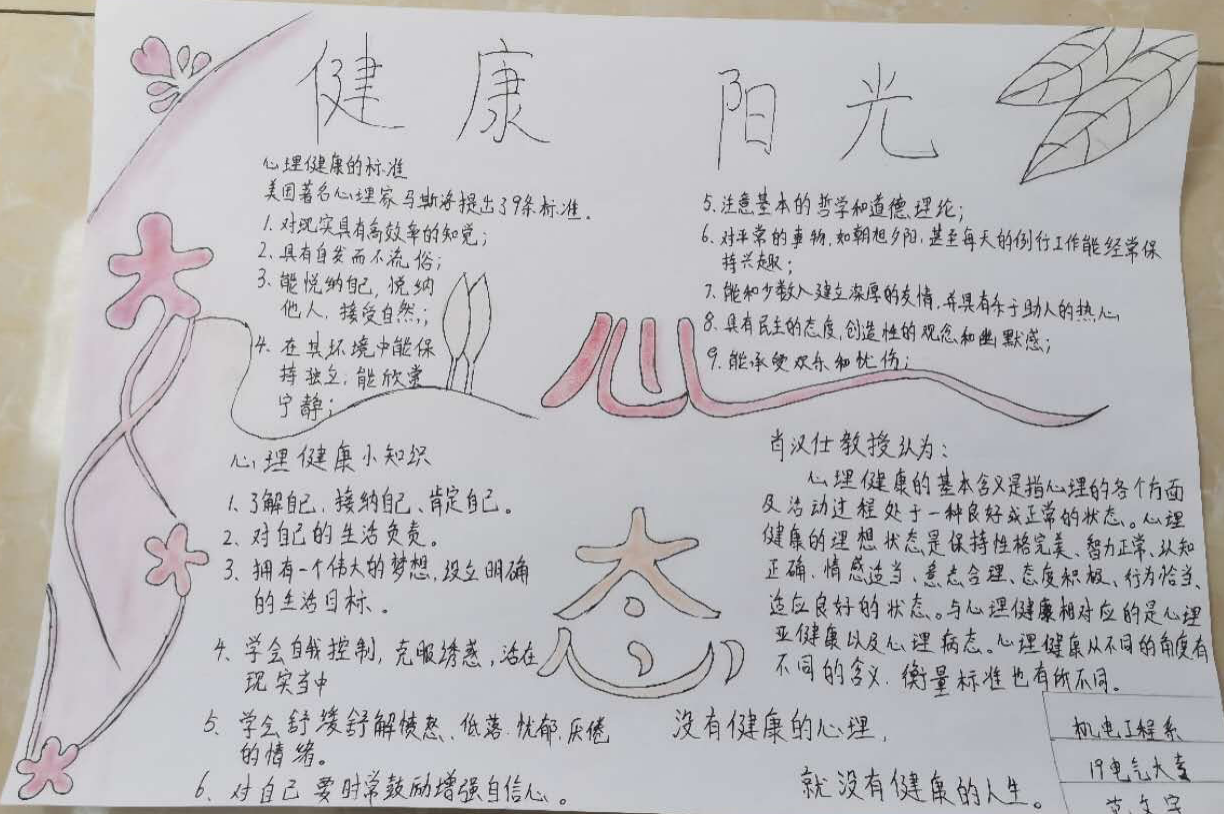 健康 阳光
心理健康的标准
美国著名心理家马斯洛提出了9条标准.
1. 对现实具有高效率的知觉;
2. 具有自发而不流俗;
3. 能悦纳自己, 悦纳
他人, 接受自然;
4. 在其环境中能保
持独立, 能欣赏
宁静;
5. 注意基本的哲学和道德理论;
6. 对平常的事物, 如朝旭夕阳, 甚至每天的例行工作能经常保
持兴趣;
7. 能和少数人建立深厚的友情, 并具有乐于助人的热心
8. 具有民主的态度, 创造性的观念和幽默感;
9. 能承受欢乐和忧伤;
心
态
心理健康小知识
1、了解自己、接纳自己、肯定自己。
2、对自己的生活负责。
3、拥有一个伟大的梦想,设立明确
的生活目标。
4、学会自我控制, 克服诱惑,活在
现实当中
5、学会舒缓舒解愤怒、低落、忧郁、厌倦
的情绪。
6、对自己要时常鼓励增强自信心。
肖汉仕教授认为:
心理健康的基本含义是指心理的各个方面
及活动过程处于一种良好或正常的状态。心理
健康的理想状态是保持性格完美、智力正常、认知
正确、情感适当、意志合理、态度积极、行为恰当、
适应良好的状态。与心理健康相对应的是心理
亚健康以及心理病态。心理健康从不同的角度有
不同的含义, 衡量标准也有所不同。
没有健康的心理,
就没有健康的人生。
机电工程系
19电气大专